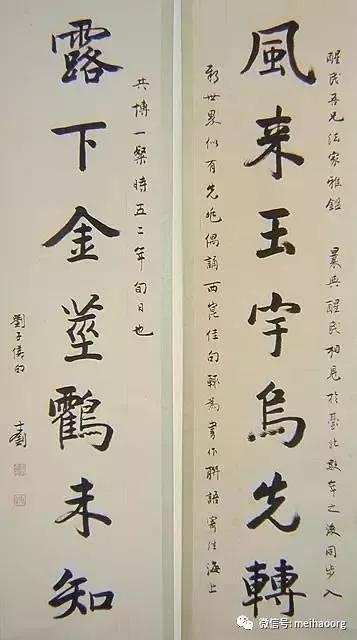 醒民吾兄法家雅鑑 曩與醒民相見於臺北數年之後同步入
風来玉宇烏先轉
新世界似有先兆偶誦西崑佳句輒為書作聯語寄往海上
共博一粲時五二年旬日也
露下金莖鸖未知
劉子侯
微信号: meihaoorg